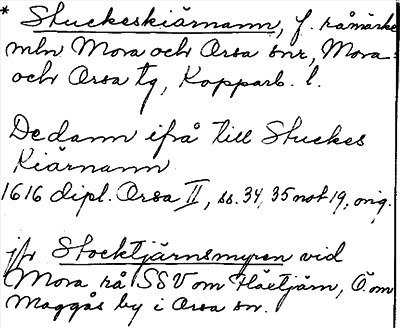 * Stuckeskiärnann, f. råmärke
mln Mora och Orsa snr, Mora
och Orsa tg, Kopparb. l.
Dedann ifrå till Stuckes
Kiärnann
1616 dipl. Orsa II, ss. 34, 35 not 19, orig.
jfr Stocktjärnsmyren vid
Mora rå SSV om Håetjärn, Ö om
Maggås by i Orsa sn.